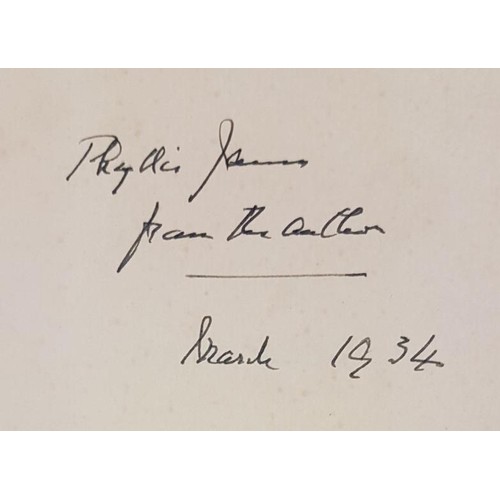 Phyllis James
from the author
March 1934.